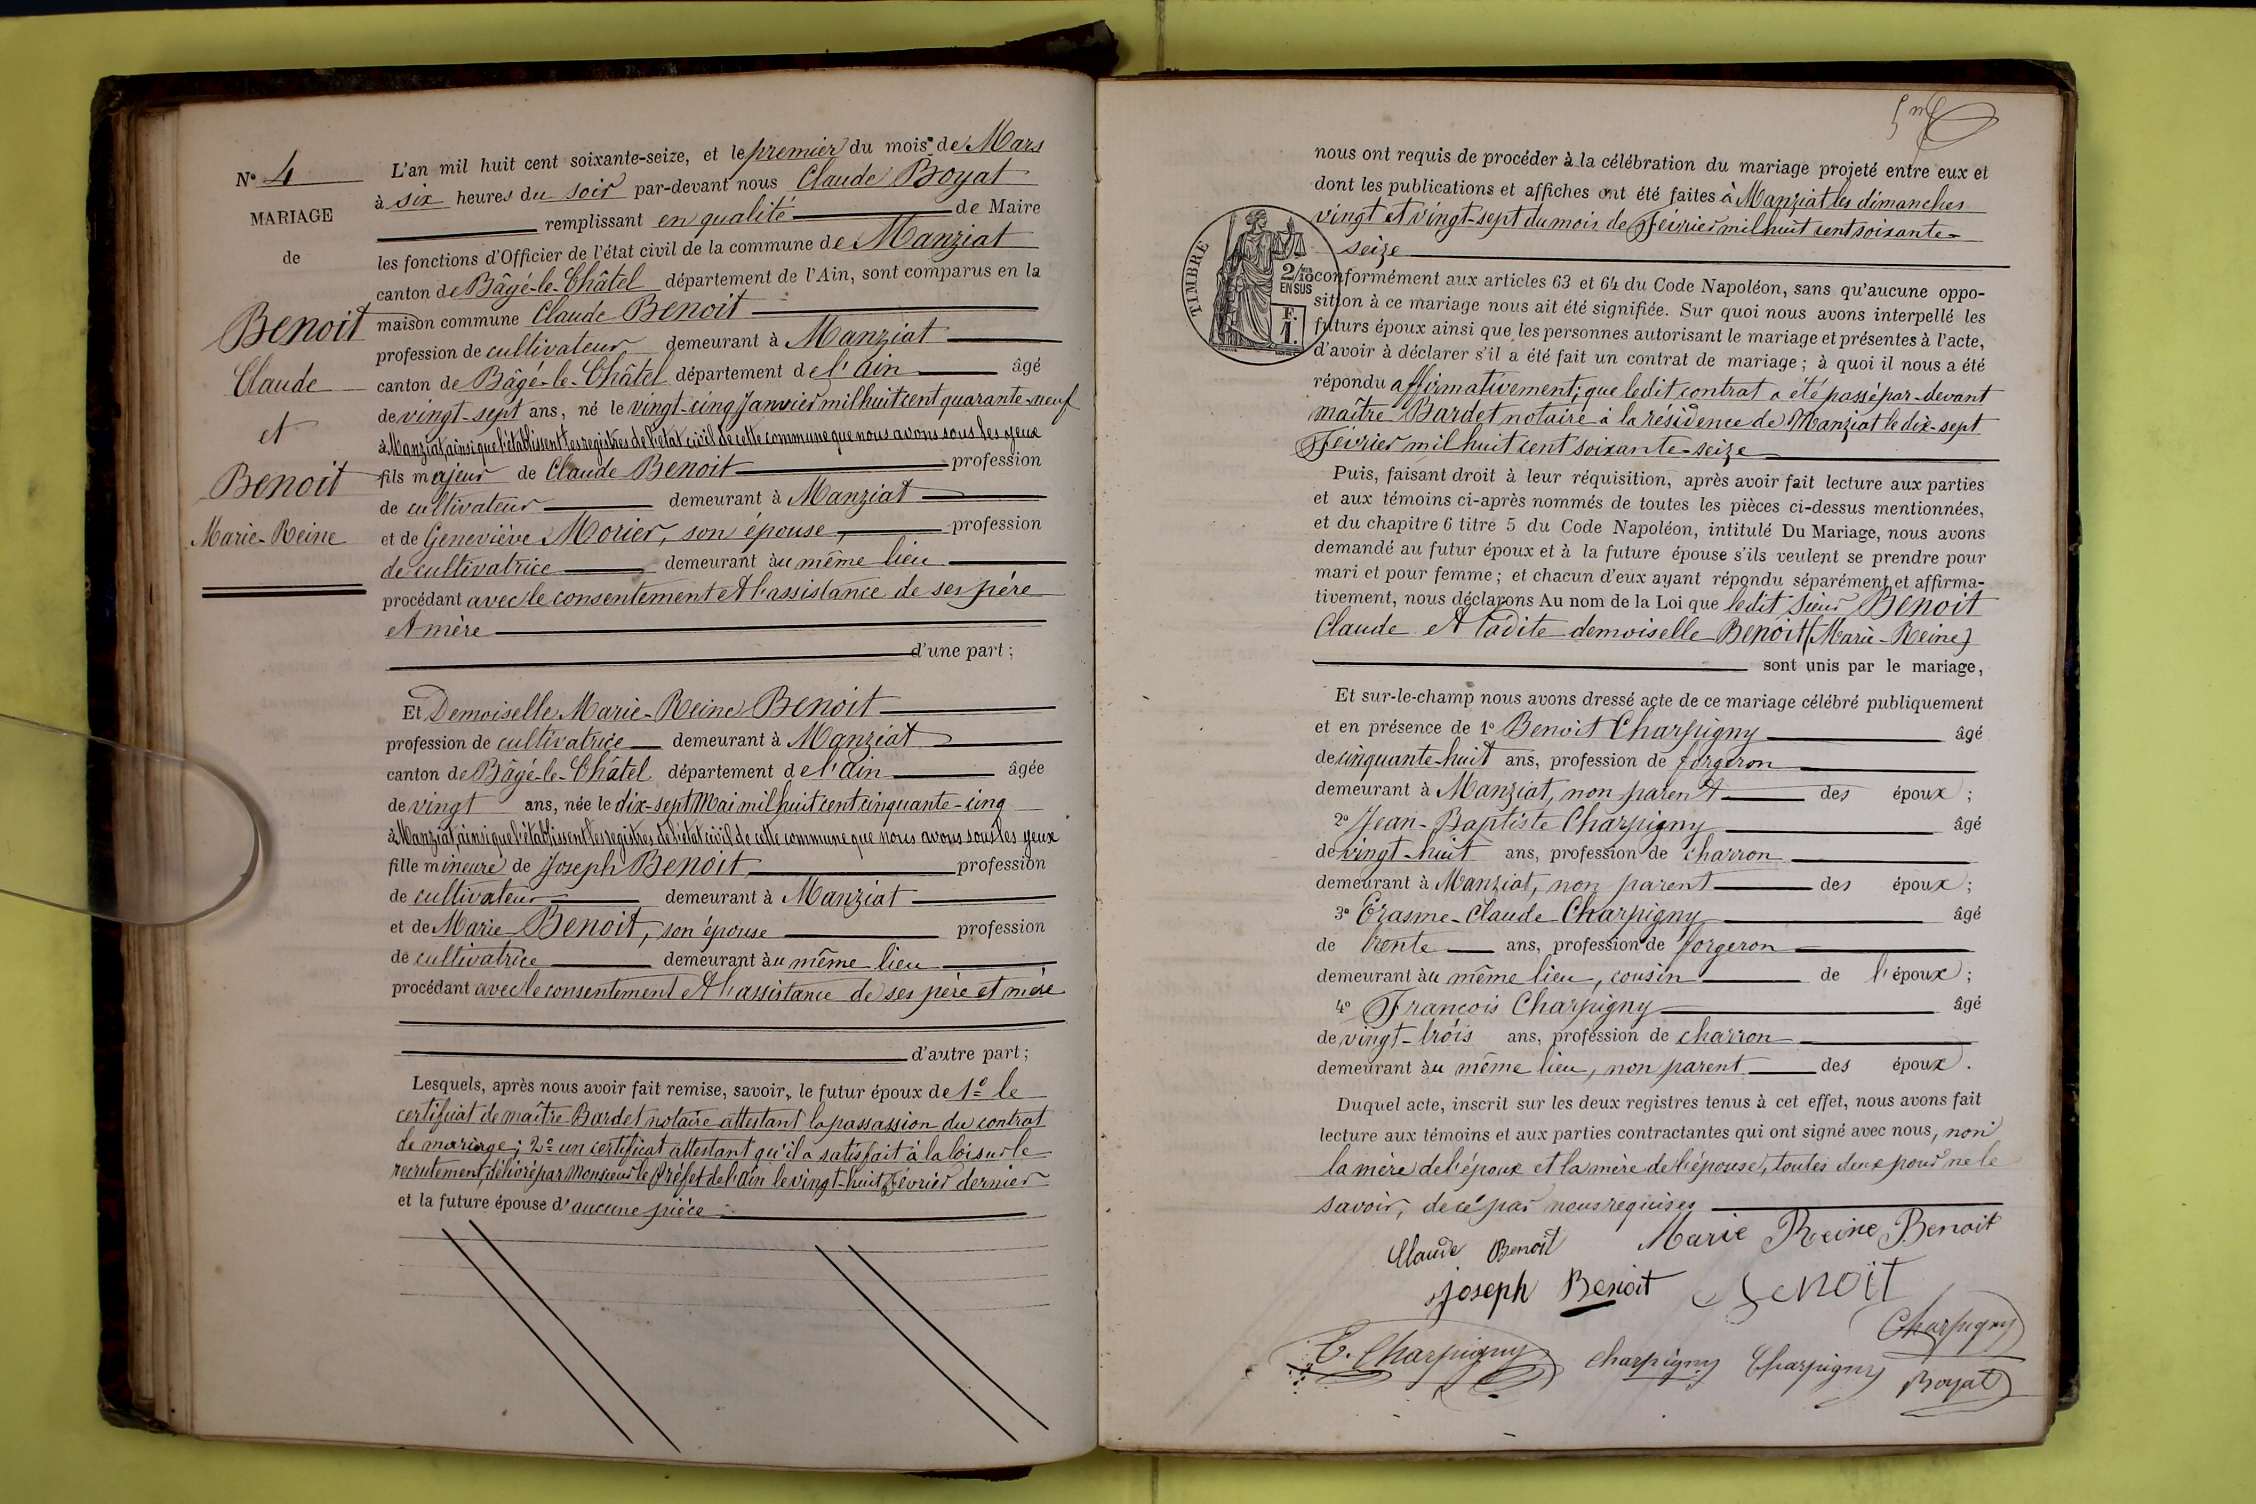 N° 4
MARIAGE
de
Benoit
Claude
et
Benoit
Marie-Reine
L'an mil huit cent soixante-seize, et le premier du mois de Mars
à six heures du soir par-devant nous Claude Boyat
remplissant en qualité de Maire
les fonctions d'Officier de l'état civil de la commune de Manziat
canton de Bâgé-le-Châtel département de l'Ain, sont comparus en la
maison commune Claude Benoit
profession de cultivateur demeurant à Manziat
canton de Bâgé-le-Châtel département de l'ain âgé
de vingt-sept ans, né le vingt-cinq Janvier mil huit cent quarante-neuf
à Manziat, ainsi que l'établissent les registres de l'état civil de cette commune que nous avons sous les yeux
fils majeur de Claude Benoit profession
de cultivateur demeurant à Manziat
et de Geneviève Morier, son épouse, profession
de cultivatrice demeurant au même lieu
procédant avec le consentement et l'assistance de ses père
et mère
d'une part ;
Et Demoiselle Marie-Reine Benoit
profession de cultivatrice demeurant à Manziat
canton de Bâgé-le-Châtel département de l'ain âgée
de vingt ans, née le dix-sept Mai mil huit cent cinquante-cinq
à Manziat, ainsi que l'établissent les registres de l'état civil de cette commune que nous avons sous les yeux
fille mineure de Joseph Benoit profession
de cultivateur demeurant à Manziat
et de Marie Benoit, son épouse profession
de cultivatrice demeurant au même lieu
procédant avec le consentement et l'assistance de ses père et mère
d'autre part ;
Lesquels, après nous avoir fait remise, savoir, le futur époux de 1° le
certificat de maître Bardet notaire attestant la passassion du contrat
de mariage ; 2° un certificat attestant qu'il a satisfait à la loi sur le
recrutement, délivré par Monsieur le Préfet de l'ain le vingt-huit Février dernier
et la future épouse d'aucune pièce
nous ont requis de procéder à la célébration du mariage projeté entre eux et
dont les publications et affiches ont été faites à Manziat les dimanches
vingt et vingt-sept du mois de Février mil huit cent soixante-
seize
TIMBRE
2/10
EN SUS
F.
1.
conformément aux articles 63 et 64 du Code Napoléon, sans qu'aucune oppo-
sition à ce mariage nous ait été signifiée. Sur quoi nous avons interpellé les
futurs époux ainsi que les personnes autorisant le mariage et présentes à l'acte,
d'avoir à déclarer s'il a été fait un contrat de mariage ; à quoi il nous a été
répondu affirmativement ; que ledit contrat a été passé par-devant
maître Bardet notaire à la résidence de Manziat le dix-sept
Février mil huit cent soixante-seize
Puis, faisant droit à leur réquisition, après avoir fait lecture aux parties
et aux témoins ci-après nommés de toutes les pièces ci-dessus mentionnées,
et du chapitre 6 titre 5 du Code Napoléon, intitulé Du Mariage, nous avons
demandé au futur époux et à la future épouse s'ils veulent se prendre pour
mari et pour femme ; et chacun d'eux ayant répondu séparément et affirma-
tivement, nous déclarons Au nom de la Loi que ledit Sieur Benoit
Claude et ladite demoiselle Benoit (Marie-Reine)
sont unis par le mariage,
Et sur-le-champ nous avons dressé acte de ce mariage célébré publiquement
et en présence de 1° Benoit Charpigny âgé
de cinquante-huit ans, profession de forgeron
demeurant à Manziat, non parent des époux ;
2° Jean-Baptiste Charpigny âgé
de vingt-huit ans, profession de charron
demeurant à Manziat, non parent des époux ;
3° Erasme-Claude Charpigny âgé
de trente ans, profession de forgeron
demeurant au même lieu, cousin de l'époux ;
4° François Charpigny âgé
de vingt-trois ans, profession de charron
demeurant au même lieu, non parent des époux.
Duquel acte, inscrit sur les deux registres tenus à cet effet, nous avons fait
lecture aux témoins et aux parties contractantes qui ont signé avec nous, non
la mère de l'époux et la mère de l'épouse, toutes deux pour ne le
savoir, de ce par nous requises
Claude Benoit Marie Reine Benoit
Joseph Benoit Benoit
Charpigny
E. Charpigny Charpigny Charpigny
Boyat